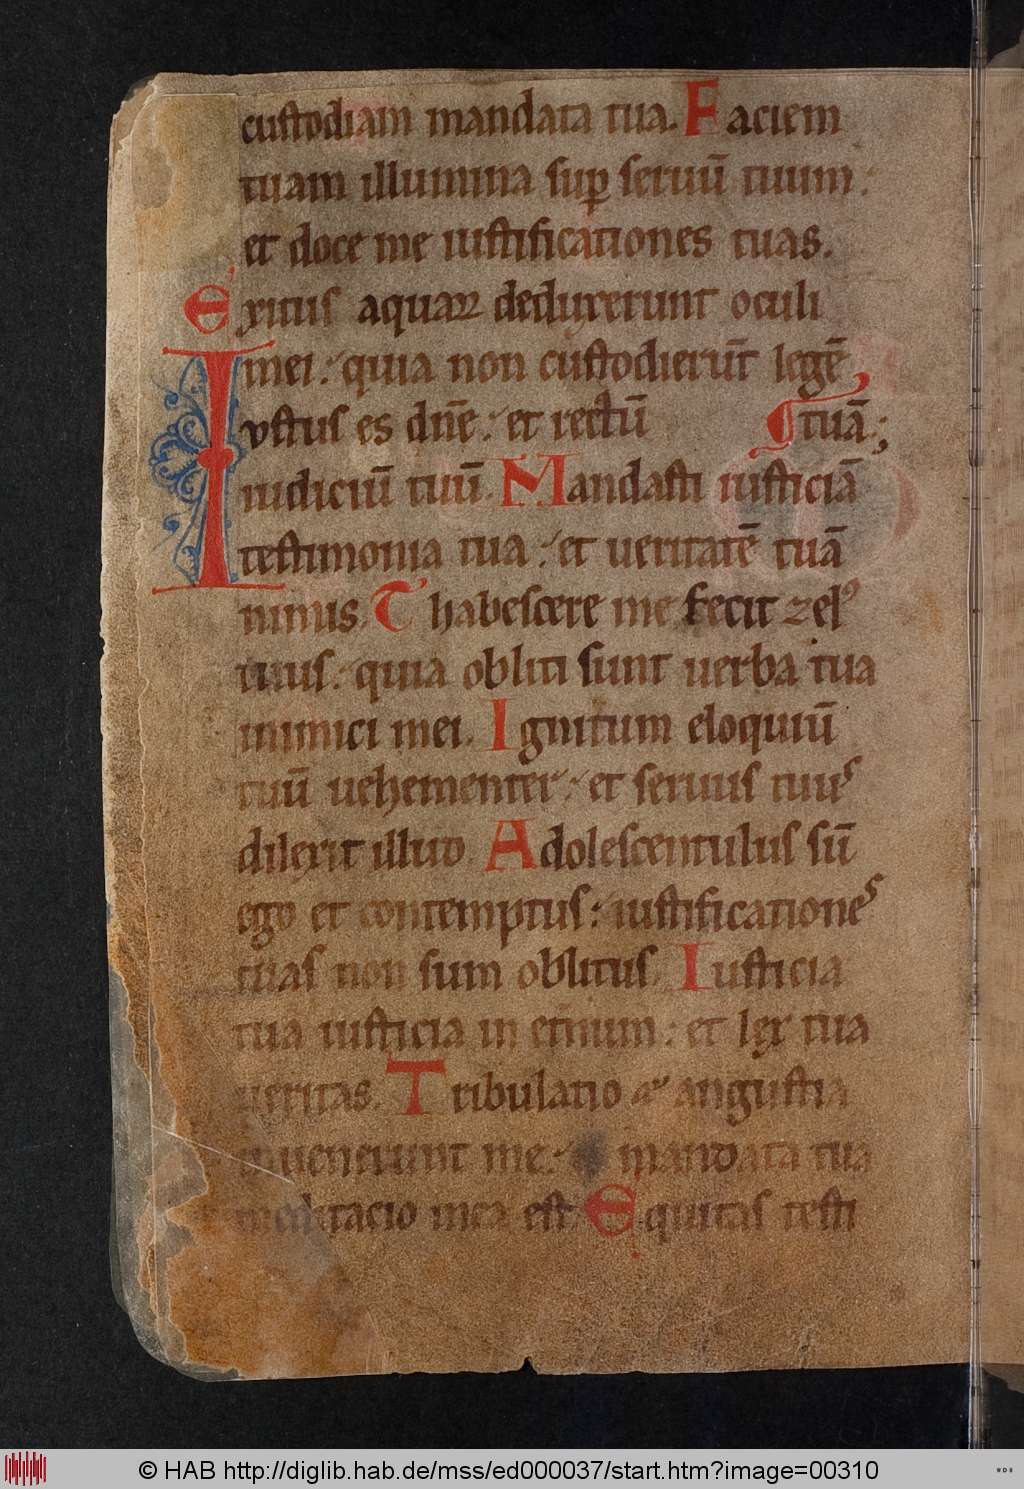 custodiam mandata tua. Faciem
tuam illumina sup̱ seruū tuum:
et doce me iustificationes tuas.
Exitus aquaꝝ deduxerunt oculi
mei: quia non custodierūt legē
Iustus es dn̄e: et rectū tuā:
iudiciū tuū. Mandasti iusticiā
testimonia tua: et ueritatē tuā
nimis. Thabescere me fecit zelꝰ
tuus: quia obliti sunt uerba tua
inimici mei. Ignitum eloquiū
tuū uehementer: et seruus tuus
dilexit illud. Adolescentulus sū
ego et contemptus: iustificationes
tuas non sum oblitus. Iusticia
tua iusticia in et̄num: et lex tua
ueritas. Tribulatio & angustia
inuenerunt me: mandata tua
meditacio mea est. Equitas testi
© HAB http://diglib.hab.de/mss/ed000037/start.htm?image=00310